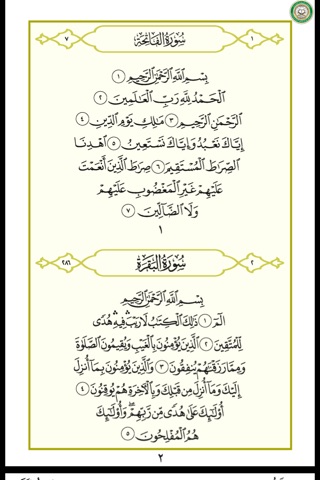 ٧ سُورَةُ الفَاتِحَةِ ١
بِسْمِ اللَّهِ الرَّحْمَٰنِ الرَّحِيمِ ١
الْحَمْدُ لِلَّهِ رَبِّ الْعَالَمِينَ ٢
الرَّحْمَٰنِ الرَّحِيمِ ٣ مَالِكِ يَوْمِ الدِّينِ ٤
إِيَّاكَ نَعْبُدُ وَإِيَّاكَ نَسْتَعِينُ ٥ اهْدِنَا
الصِّرَاطَ الْمُسْتَقِيمَ ٦ صِرَاطَ الَّذِينَ أَنْعَمْتَ
عَلَيْهِمْ غَيْرِ الْمَغْضُوبِ عَلَيْهِمْ
وَلَا الضَّالِّينَ ٧
١
٢٨٦ سُورَةُ البَقَرَةِ ٢
بِسْمِ اللَّهِ الرَّحْمَٰنِ الرَّحِيمِ
الٓمٓ ١ ذَٰلِكَ الْكِتَابُ لَا رَيْبَ ۛ فِيهِ ۛ هُدًى
لِّلْمُتَّقِينَ ٢ الَّذِينَ يُؤْمِنُونَ بِالْغَيْبِ وَيُقِيمُونَ الصَّلَاةَ
وَمِمَّا رَزَقْنَاهُمْ يُنفِقُونَ ٣ وَالَّذِينَ يُؤْمِنُونَ بِمَا أُنزِلَ
إِلَيْكَ وَمَا أُنزِلَ مِن قَبْلِكَ وَبِالْآخِرَةِ هُمْ يُوقِنُونَ ٤
أُولَٰئِكَ عَلَىٰ هُدًى مِّن رَّبِّهِمْ ۖ وَأُولَٰئِكَ
هُمُ الْمُفْلِحُونَ ٥
٢